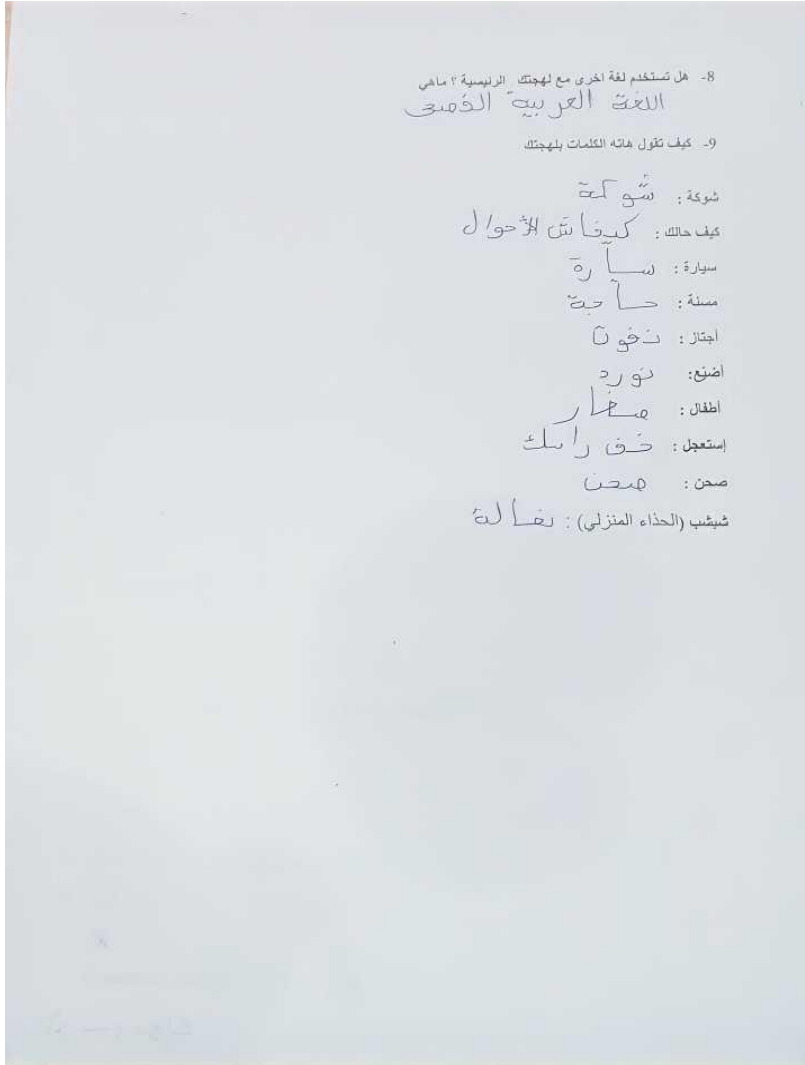 8- هل تستخدم لغة اخرى مع لهجتك الرئيسية ؟ ماهي
اللغة العربية الفصحى
9- كيف تقول هاته الكلمات بلهجتك
شوكة : شوكة
كيف حالك : كيفاش الأحوال
سيارة : سيارة
مسنة : حاجة
أجتاز : نفوت
أضيّع: نورد
أطفال : صغار
إستعجل : خف راسك
صحن : صحن
شبشب (الحذاء المنزلي) : نغالة